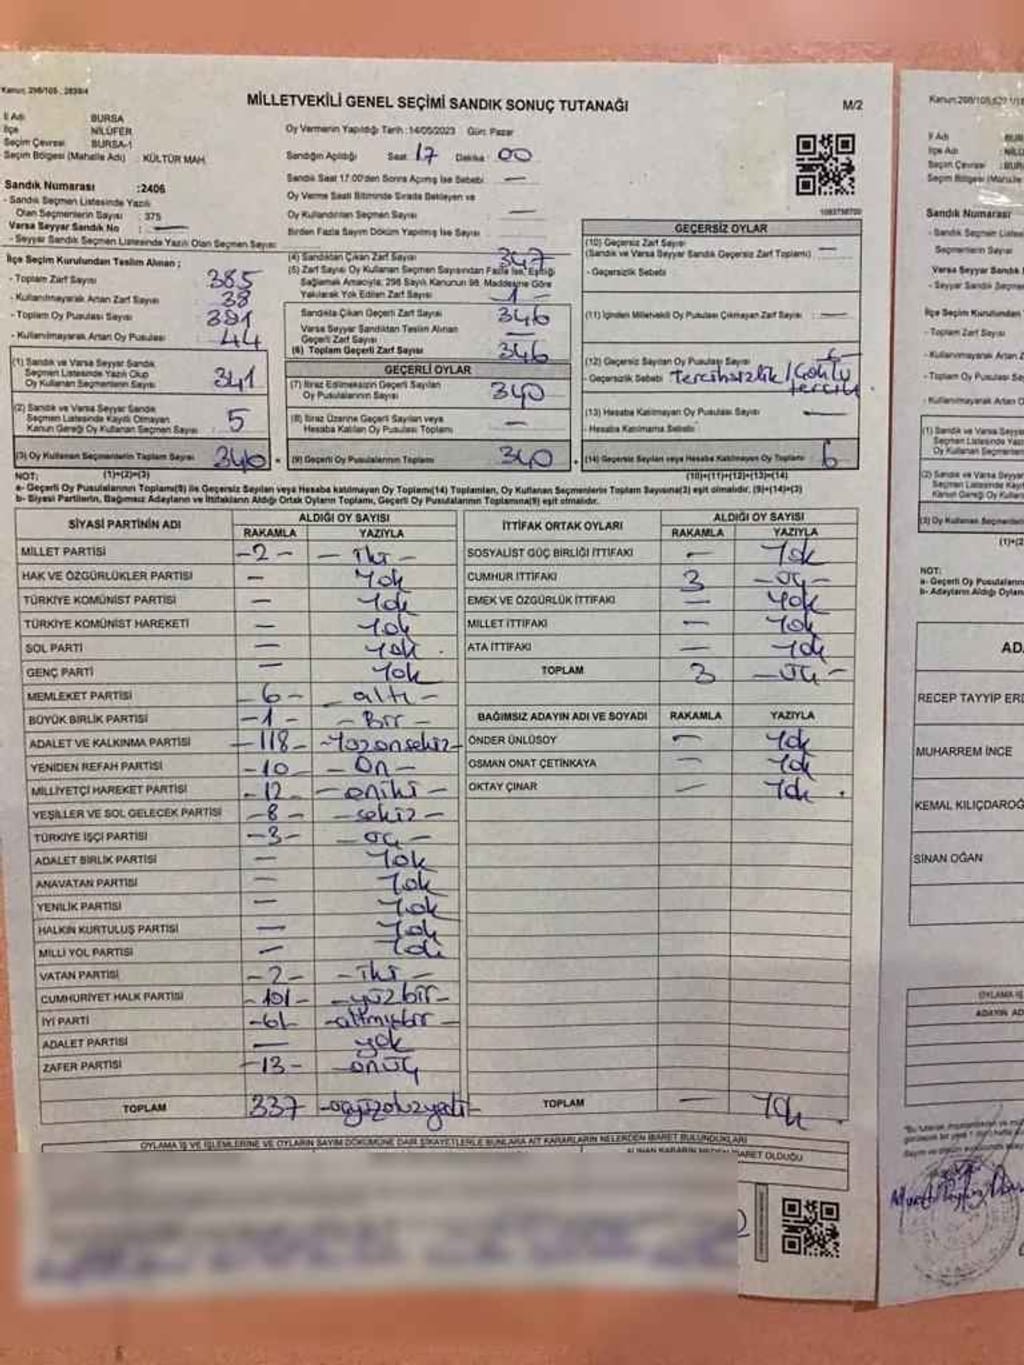 Kanun: 298/105, 2839/4
MİLLETVEKİLİ GENEL SEÇİMİ SANDIK SONUÇ TUTANAĞI
M/2
İl Adı BURSA
İlçe NİLÜFER
Seçim Çevresi : BURSA-1
Seçim Bölgesi (Mahalle Adı) : KÜLTÜR MAH.
Oy Vermenin Yapıldığı Tarih :14/05/2023 Gün: Pazar
Sandığın Açıldığı Saat 17 Dakika : 00
Sandık Saat 17.00'den Sonra Açılmış İse Sebebi : —
Oy Verme Saati Bitiminde Sırada Bekleyen ve
Oy Kullandırılan Seçmen Sayısı —
Birden Fazla Sayım Döküm Yapılmış İse Sayısı
Sandık Numarası :2406
- Sandık Seçmen Listesinde Yazılı
Olan Seçmenlerin Sayısı : 375
Varsa Seyyar Sandık No : —
- Seyyar Sandık Seçmen Listesinde Yazılı Olan Seçmen Sayısı
İlçe Seçim Kurulundan Teslim Alınan ;
- Toplam Zarf Sayısı 385
- Kullanılmayarak Artan Zarf Sayısı 38
- Toplam Oy Pusulası Sayısı 391
- Kullanılmayarak Artan Oy Pusulası 44
(1) Sandık ve Varsa Seyyar Sandık
Seçmen Listesinde Yazılı Olup
Oy Kullanan Seçmenlerin Sayısı 341
(2) Sandık ve Varsa Seyyar Sandık
Seçmen Listesinde Kaydı Olmayan
Kanun Gereği Oy Kullanan Seçmen Sayısı 5
(3) Oy Kullanan Seçmenlerin Toplam Sayısı 346
(1)+(2)=(3)
(4) Sandıktan Çıkan Zarf Sayısı 347
(5) Zarf Sayısı Oy Kullanan Seçmen Sayısından Fazla İse, Eşitliği
Sağlamak Amacıyla; 298 Sayılı Kanunun 98. Maddesine Göre
Yakılarak Yok Edilen Zarf Sayısı 1 -
Sandıkta Çıkan Geçerli Zarf Sayısı 346
Varsa Seyyar Sandıktan Teslim Alınan
Geçerli Zarf Sayısı —
(6) Toplam Geçerli Zarf Sayısı 346
GEÇERLİ OYLAR
(7) İtiraz Edilmeksizin Geçerli Sayılan
Oy Pusulasının Sayısı 340
(8) İtiraz Üzerine Geçerli Sayılan veya
Hesaba Katılan Oy Pusulası Toplamı —
(9) Geçerli Oy Pusulalarının Toplamı 340
GEÇERSİZ OYLAR
(10) Geçersiz Zarf Sayısı
(Sandık ve Varsa Seyyar Sandık Geçersiz Zarf Toplamı) —
- Geçersizlik Sebebi
(11) İçinden Milletvekili Oy Pusulası Çıkmayan Zarf Sayısı : —
(12) Geçersiz Sayılan Oy Pusulası Sayısı 6
- Geçersizlik Sebebi : Tercihsizlik / Çoklu
tercih
(13) Hesaba Katılmayan Oy Pusulası Sayısı —
- Hesaba Katılmama Sebebi
(14) Geçersiz Sayılan veya Hesaba Katılmayan Oy Toplamı 6
(10)+(11)+(12)+(13)=(14)
NOT:
a- Geçerli Oy Pusulasının(9) ile Geçersiz Sayılan veya Hesaba katılmayan Oy Toplamı(14) Toplamları, Oy Kullanan Seçmenlerin Toplam Sayısına(3) eşit olmalıdır. (9)+(14)=(3)
b- Siyasi Partilerin, Bağımsız Adayların ve İttifakların Aldığı Ortak Oyların Toplamı, Geçerli Oy Pusulalarının Toplamına(9) eşit olmalıdır.
SİYASİ PARTİNİN ADI ALDIĞI OY SAYISI
RAKAMLA YAZIYLA
MİLLET PARTİSİ -2- - iki -
HAK VE ÖZGÜRLÜKLER PARTİSİ — Yok
TÜRKİYE KOMÜNİST PARTİSİ — Yok
TÜRKİYE KOMÜNİST HAREKETİ — Yok
SOL PARTİ — Yok
GENÇ PARTİ — Yok
MEMLEKET PARTİSİ -6- - altı -
BÜYÜK BİRLİK PARTİSİ -1- - Bir -
ADALET VE KALKINMA PARTİSİ -118- -Yüzonsekiz-
YENİDEN REFAH PARTİSİ -10- - On -
MİLLİYETÇİ HAREKET PARTİSİ -12- - oniki -
YEŞİLLER VE SOL GELECEK PARTİSİ -8- - sekiz -
TÜRKİYE İŞÇİ PARTİSİ -3- - üç -
ADALET BİRLİK PARTİSİ — Yok
ANAVATAN PARTİSİ — Yok
YENİLİK PARTİSİ — Yok
HALKIN KURTULUŞ PARTİSİ — Yok
MİLLİ YOL PARTİSİ — Yok
VATAN PARTİSİ -2- - iki -
CUMHURİYET HALK PARTİSİ -101- -yüzbir-
İYİ PARTİ -61- -altmışbir-
ADALET PARTİSİ — yok
ZAFER PARTİSİ -13- -onüç
TOPLAM 337 -üçyüzotuzyedi-
İTTİFAK ORTAK OYLARI ALDIĞI OY SAYISI
RAKAMLA YAZIYLA
SOSYALİST GÜÇ BİRLİĞİ İTTİFAKI — Yok
CUMHUR İTTİFAKI 3 -üç-
EMEK VE ÖZGÜRLÜK İTTİFAKI — Yok
MİLLET İTTİFAKI — Yok
ATA İTTİFAKI — Yok
TOPLAM 3 -üç-
BAĞIMSIZ ADAYIN ADI VE SOYADI RAKAMLA YAZIYLA
ÖNDER ÜNLÜSOY — Yok
OSMAN ONAT ÇETİNKAYA — Yok
OKTAY ÇINAR — Yok
TOPLAM — Yok
OYLAMA İŞ VE İŞLEMLERİNE VE OYLARIN SAYIM DÖKÜMÜNE DAİR ŞİKAYETLERLE BUNLARA AİT KARARLARIN NELERDEN İBARET BULUNDUKLARI
İl Adı
İlçe Adı
Seçim Çevresi
Sandık Numarası
- Sandık Seçmen
Varsa Seyyar
- Seyyar Sandık
İlçe Seçim Kurulundan
- Toplam Zarf
- Kullanılmayarak
- Toplam Oy Pusulası
- Kullanılmayarak
NOT:
a- Geçerli Oy
b- Adayların Aldığı
RECEP TAYYİP
MUHARREM İNCE
KEMAL
SİNAN OĞAN